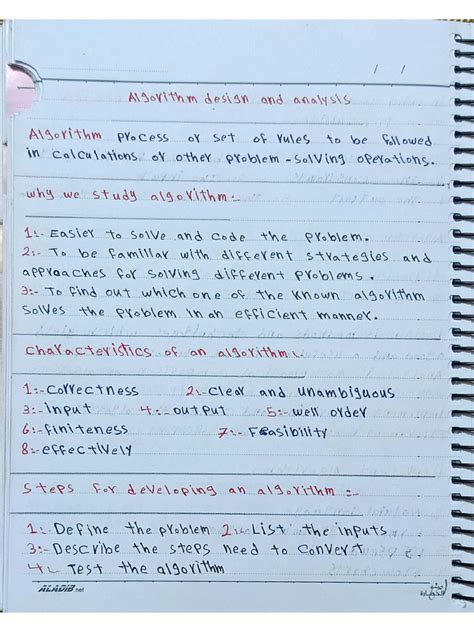 / /
Algorithm design and analysis
Algorithm process or set of rules to be followed
in calculations or other problem-solving operations.
why we study algorithm:-
1:- Easier to solve and code the problem.
2:- To be familiar with different strategies and
approaches for solving different problems.
3:- To find out which one of the known algorithm
solves the problem in an efficient manner.
characteristics of an algorithm:-
1:- correctness 2:- clear and unambiguous
3:- Input 4:- output 5:- well order
6:- finiteness 7:- Feasibility
8:- effectively
steps for developing an algorithm:-
1:- Define the problem 2:- List the inputs
3:- Describe the steps need to convert
4:- Test the algorithm
ALADIB.net